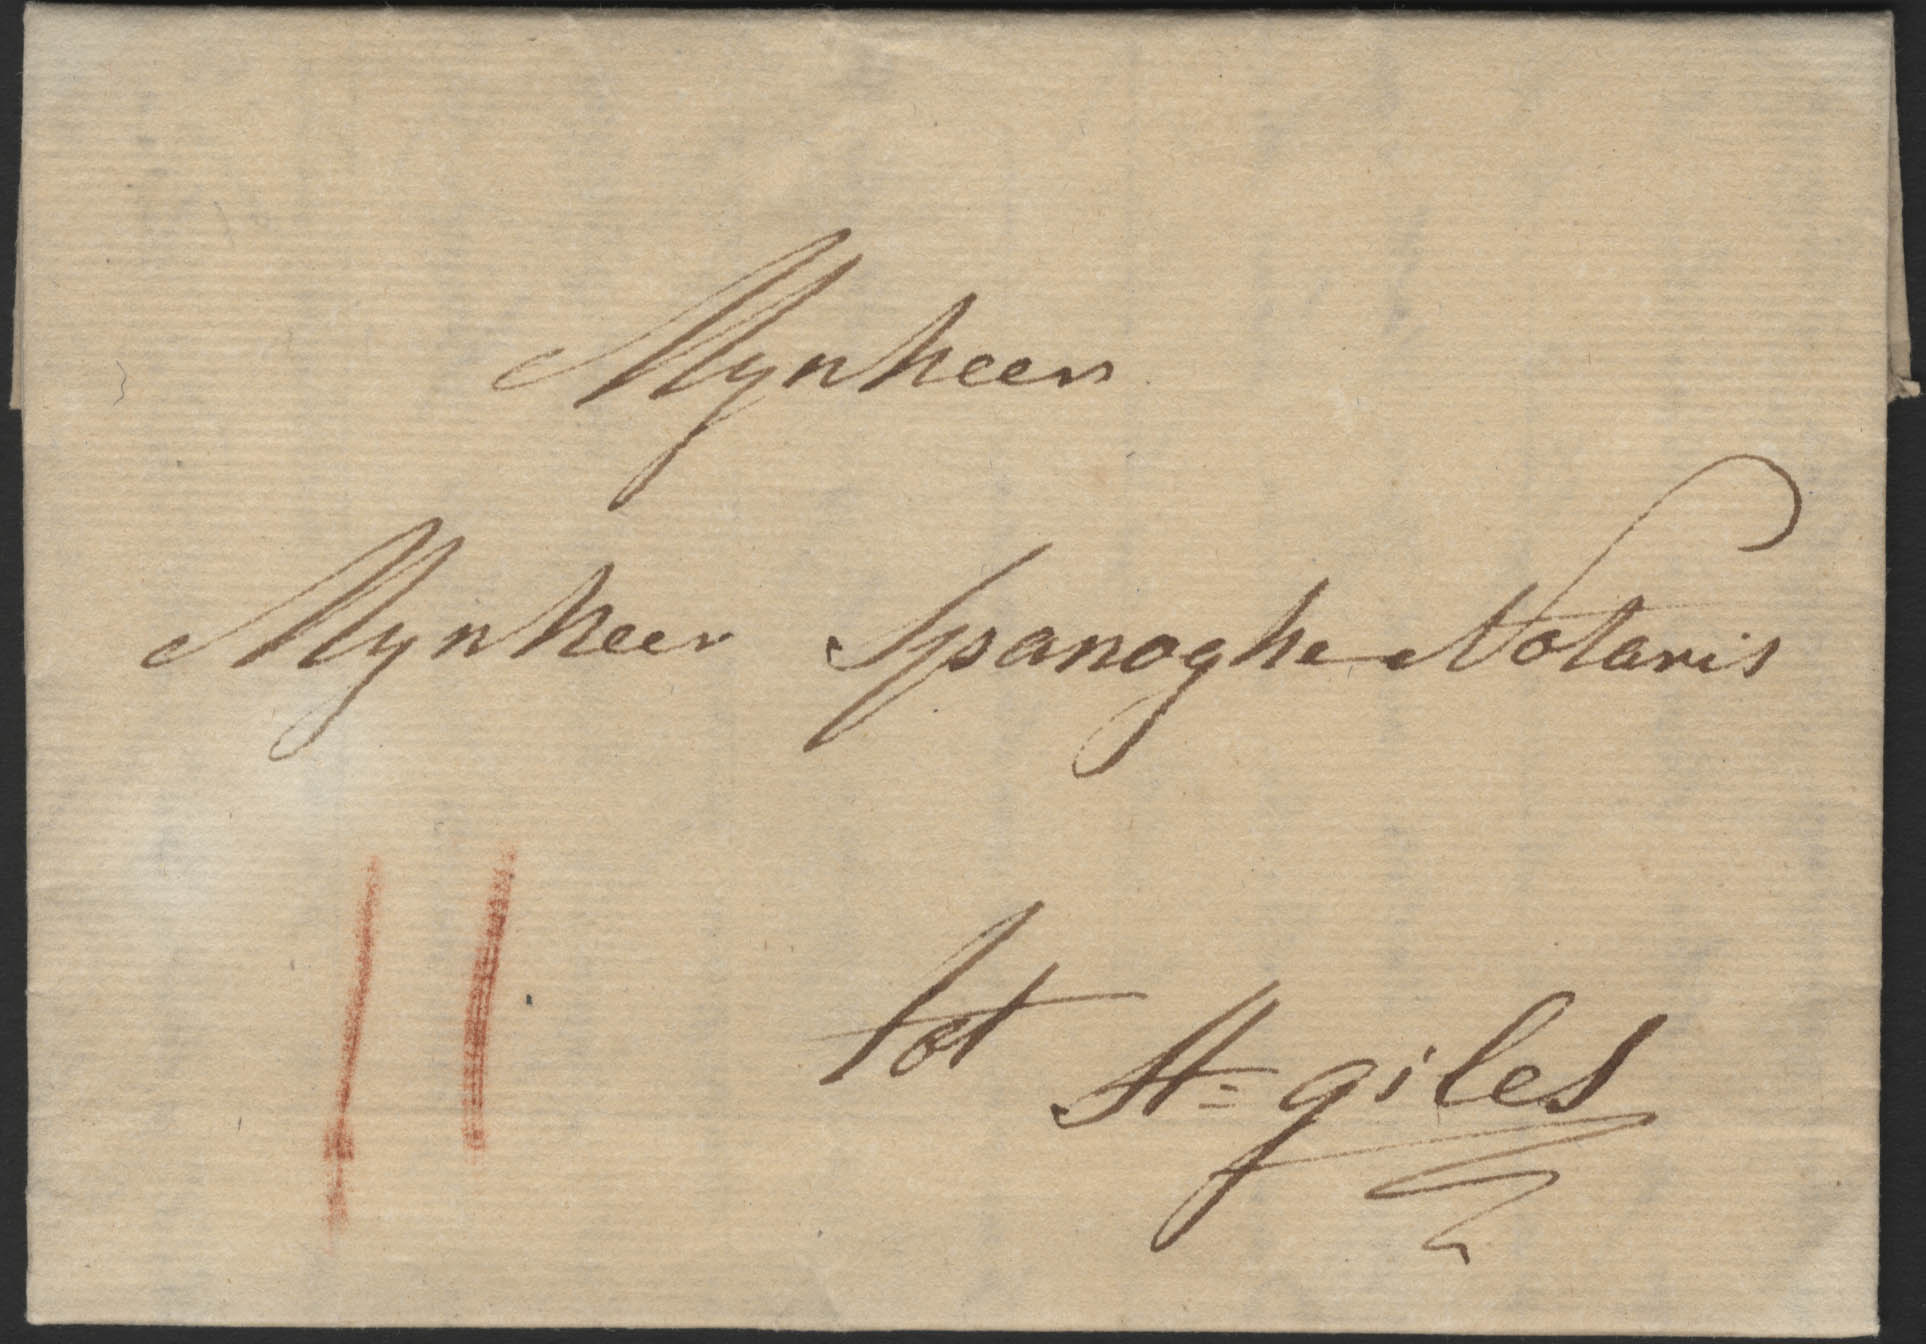 Mynheer
Mynheer Spanoghe Notaris
tot
St= giles
11